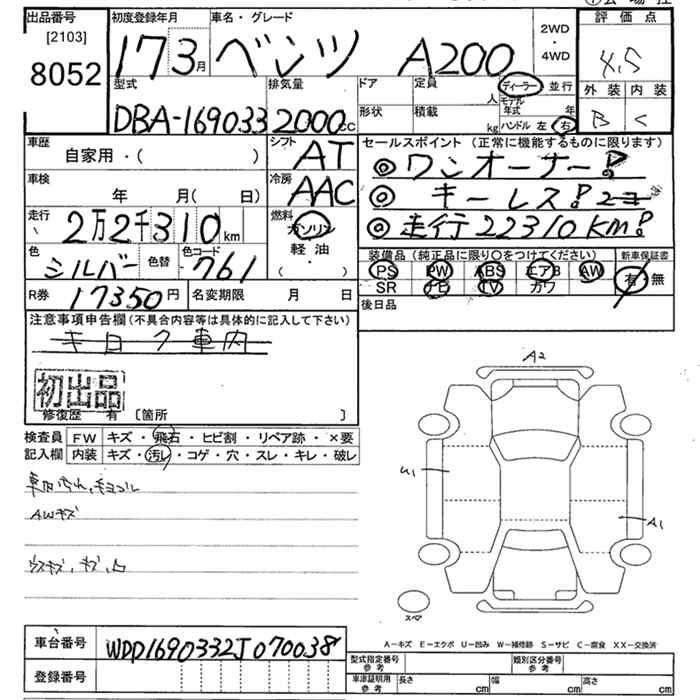 出品番号
[2103]
8052
初度登録年月
17 3月
車名・グレード
ベンツ A200
2WD
・
4WD
評価点
4.5
外装 内装
B C
型式
DBA-169033
排気量
2000cc
ドア
形状
定員
人
積載
kg
ディーラー 並行
モデル年式 年
ハンドル 左 右
車歴
自家用・( )
シフト
AT
車検
年 月( 日)
冷房
AAC
走行
2万2千310km
燃料
ガソリン
軽油
・( )
色
シルバー
色替
色コード
761
R券 17350円
名変期限 月 日
セールスポイント (正常に機能するものに限ります)
◎ワンオーナー!
◎キーレス!2コ
◎走行22310KM!
装備品(純正品に限り○をつけてください)
PS PW ABS エアB AW
SR ナビ TV カワ
新車保証書
有 無
後日品
注意事項申告欄(不具合内容等は具体的に記入して下さい)
車内
初出品
修復歴 有 [箇所 ]
検査員
記入欄
FW キズ・飛石・ヒビ割・リペア跡・×要
内装 キズ・汚レ・コゲ・穴・スレ・キレ・破レ
AWキズ
A2
U1
A1
スペア
A-キズ E-エクボ U-凹み W-補修跡 S-サビ C-腐食 XX-交換済
車台番号 WDD1690332J070038
登録番号
型式指定番号
参考
類別区分番号
参考
車庫証明用
参考
長さ cm 幅 cm 高さ cm